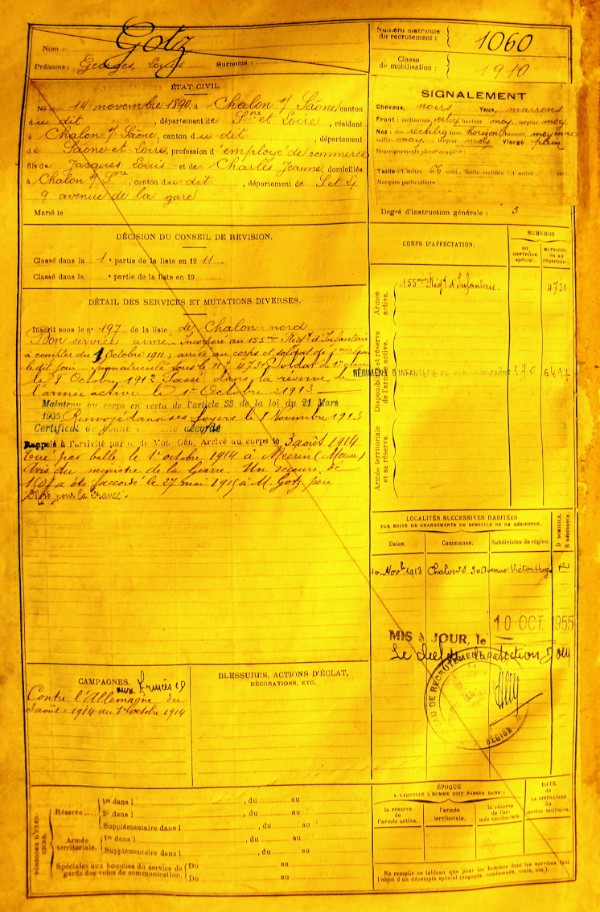 Nom : Gotz
Prénoms : Georges, Louis Surnoms :
Numéro matricule du recrutement : 1060
Classe de mobilisation : 1910
ÉTAT CIVIL.
Né le 14 novembre 1890, à Chalon s/ Saône, canton
du dit , département de Sne et Loire, résidant
à Chalon s/ Saône, canton du dit , département
de Saône et Loire, profession d'employé de commerce
fils de Jacques Louis et de Charle Jeanne, domiciliés
à Chalon s/ Sne, canton du dit , département de S et L
9 avenue de la gare
Marié le
SIGNALEMENT
Cheveux noirs Yeux marrons
Front : inclinaison hauteur moy. largeur moy.
Nez : rectiligne moyenne
moy. Visage plein
Renseignements physionomiques :
Taille : 1 mètre 66 cent. Taille rectifiée : 1 mètre cent.
Marques particulières :
Degré d'instruction générale : 3
DÉCISION DU CONSEIL DE REVISION.
Classé dans la 1e partie de la liste en 1911
Classé dans la partie de la liste en 19
DÉTAIL DES SERVICES ET MUTATIONS DIVERSES.
Inscrit sous le n° 197 de la liste de Chalon-nord
Bon service armé. Incorporé au 155me Régt d'Infanterie
à compter du 1 Octobre 1911, arrivé au corps et soldat de
le dit jour. Immatriculé sous le N° 4731. Soldat de 1e classe
le 8 Octobre 1912. Passé dans la réserve de
l'armée active le 1er Octobre 1913
Maintenu au corps en vertu de l'article 33 de la loi du 21 Mars
1905 Renvoyé dans ses foyers le Novembre 1913
Certificat de bonne accordé
Rappelé à l'activité par de Mob. Gén. Arrivé au corps le 3 août 1914
Tué par balle le 1er octobre 1914 à Mécrin (Meuse)
Avis du ministre de la Guerre. Un secours de
150f a été accordé le 27 mai 1915 à M. Gotz père
Mort pour la France.
CORPS D'AFFECTATION.
NUMÉROS
AU CONTRÔLE SPÉCIAL.
MATRICULE OU AU RÉPERTOIRE.
Armée active.
155me Régt d'Infanterie 4731
Disponibilité et réserve de l'armée active.
RÉGIMENT D'INFANTERIE
Armée territoriale et sa réserve.
LOCALITÉS SUCCESSIVES HABITÉES
PAR SUITE DE CHANGEMENTS DE DOMICILE OU DE RÉSIDENCE.
Dates. Communes. Subdivision de région. D DOMICILE. R RÉSIDENCE.
10 Novbre 1913 Chalon s/S. 30 Avenue Victor Hugo
10 OCT. 1955
MIS à JOUR, le
BU DE RECRUTEMENT
RÉGION
CAMPAGNES.
Contre l'Allemagne du
3 août 1914 au 1er octobre 1914
BLESSURES, ACTIONS D'ÉCLAT,
DÉCORATIONS, ETC.
PÉRIODES D'EXERCICES.
Réserve
1re dans l , du au
2e dans l , du au
Supplémentaire dans l , du au
Armée territoriale.
1re dans l , du au
Supplémentaire dans l , du au
Spéciales aux hommes du service de garde des voies de communication.
Du au
Du au
ÉPOQUE
A LAQUELLE L'HOMME DOIT PASSER DANS :
la réserve de l'armée active.
l'armée territoriale.
la réserve de l'armée territoriale.
DATE DE LA LIBÉRATION DU service militaire.
Ne remplir ce tableau que pour les hommes dont les services sont l'objet d'un décompte spécial (engagés, condamnés, omis, etc.).